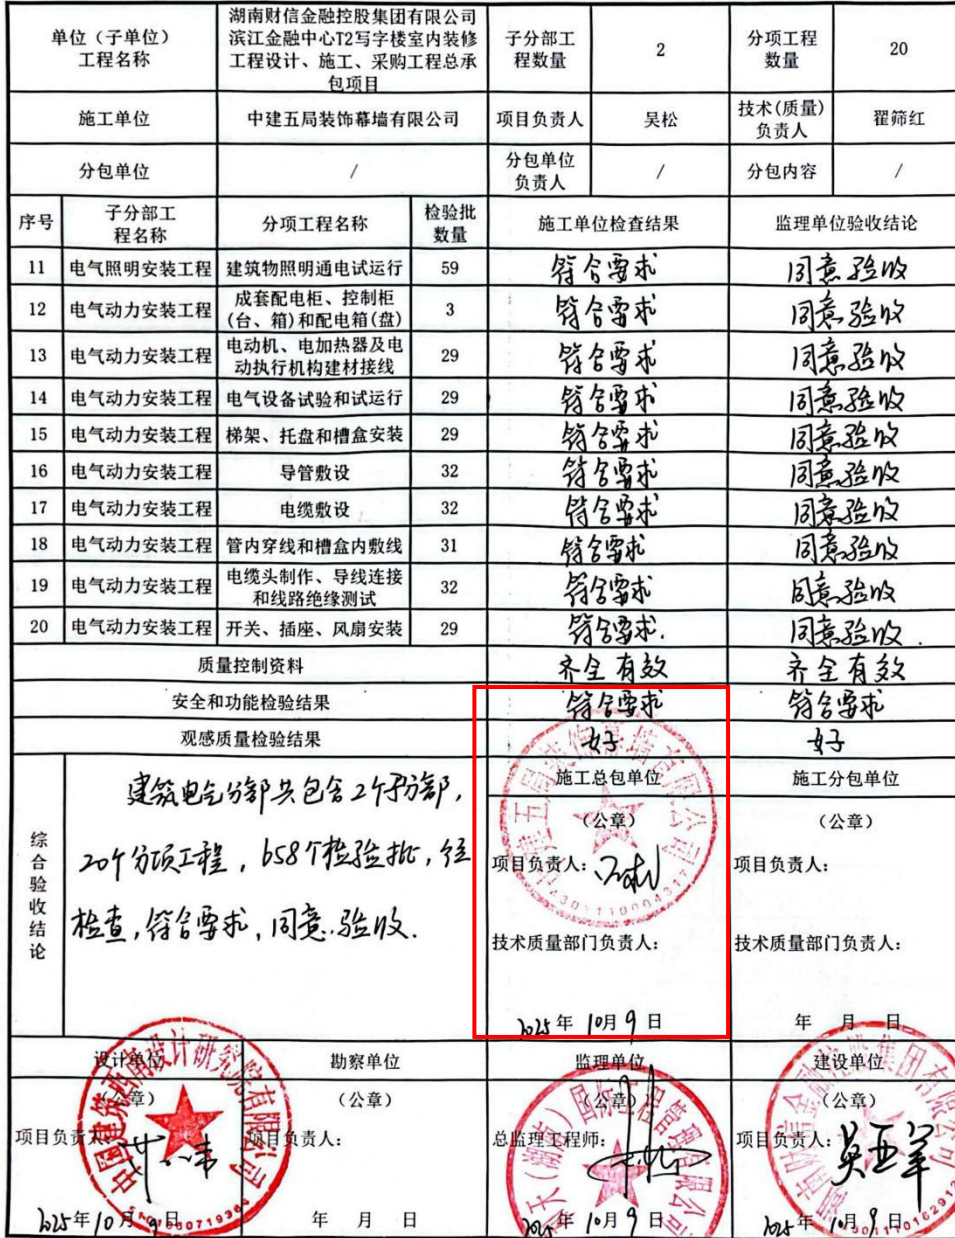 单位（子单位）
工程名称
湖南财信金融控股集团有限公司
滨江金融中心T2写字楼室内装修
工程设计、施工、采购工程总承
包项目
子分部工
程数量
2
分项工程
数量
20
施工单位
中建五局装饰幕墙有限公司
项目负责人
吴松
技术(质量)
负责人
翟筛红
分包单位
/
分包单位
负责人
/
分包内容
/
序号
子分部工
程名称
分项工程名称
检验批
数量
施工单位检查结果
监理单位验收结论
11 电气照明安装工程 建筑物照明通电试运行 59 符合要求 同意验收
12 电气动力安装工程 成套配电柜、控制柜
(台、箱)和配电箱(盘) 3 符合要求 同意验收
13 电气动力安装工程 电动机、电加热器及电
动执行机构建材接线 29 符合要求 同意验收
14 电气动力安装工程 电气设备试验和试运行 29 符合要求 同意验收
15 电气动力安装工程 梯架、托盘和槽盒安装 29 符合要求 同意验收
16 电气动力安装工程 导管敷设 32 符合要求 同意验收
17 电气动力安装工程 电缆敷设 32 符合要求 同意验收
18 电气动力安装工程 管内穿线和槽盒内敷线 31 符合要求 同意验收
19 电气动力安装工程 电缆头制作、导线连接
和线路绝缘测试 32 符合要求 同意验收
20 电气动力安装工程 开关、插座、风扇安装 29 符合要求. 同意验收.
质量控制资料 齐全有效 齐全有效
安全和功能检验结果 符合要求 符合要求
观感质量检验结果 好 好
综合验收结论
建筑电气分部共包含2个子分部，
20个分项工程，658个检验批，经
检查，符合要求，同意验收.
施工总包单位
（公章）
中建五局装饰幕墙有限公司
项目负责人：吴松
技术质量部门负责人：
2025年10月9日
施工分包单位
（公章）
项目负责人：
技术质量部门负责人：
年 月 日
设计单位
（公章）
中国建筑西南设计研究院有限公司
项目负责人：
2025年10月9日
勘察单位
（公章）
项目负责人：
年 月 日
监理单位
（公章）
总监理工程师：
2025年10月9日
建设单位
（公章）
项目负责人：吴亚军
2025年10月9日